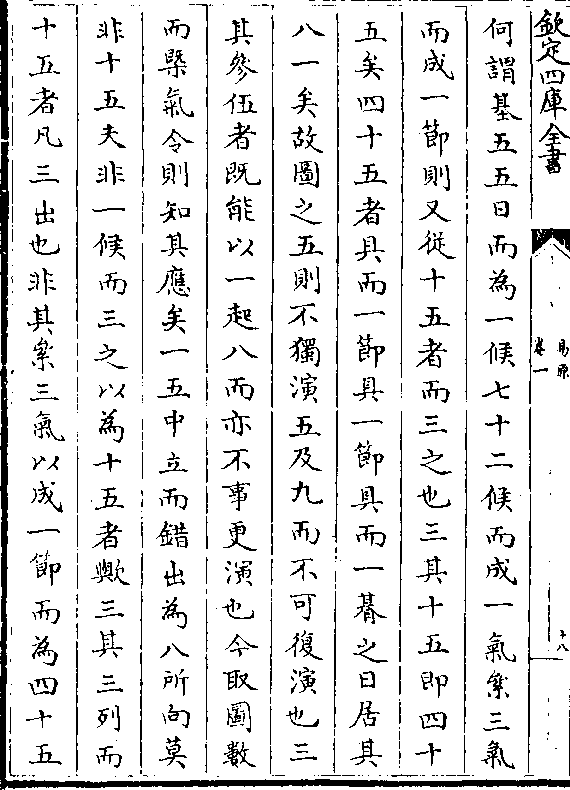 欽定四庫全書
易原
卷一
十八
何謂基五五日而為一候七十二候而成一氣絫三氣
而成一節則又從十五者而三之也三其十五即四十
五矣四十五者具而一節具一節具而一朞之日居其
八一矣故圖之五則不獨演五及九而不可復演也三
其參伍者既能以一起八而亦不事更演也今取圖數
而槩氣令則知其應矣一五中立而錯出為八所向莫
非十五夫非一候而三之以為十五者歟三其三列而
十五者凡三出也非其絫三氣以成一節而為四十五